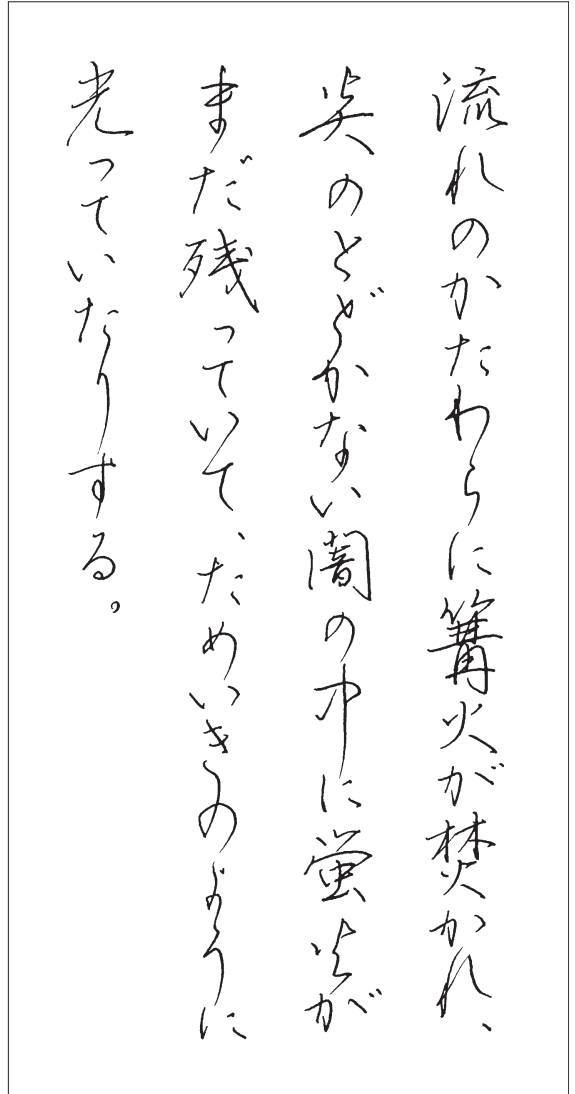 流れのかたわらに篝火が焚かれ、
炎のとどかない闇の中に蛍火が
まだ残っていて、ためいきのように
光っていたりする。